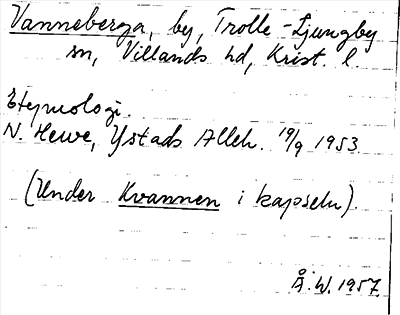 Vanneberga, by, Trolle-Ljungby
sn, Villands hd, Krist. l.
Etymologi.
N. Hewe, Ystads Alleh. 19/9 1953
(Under Kvannen i kapseln).
Å.W. 1957.